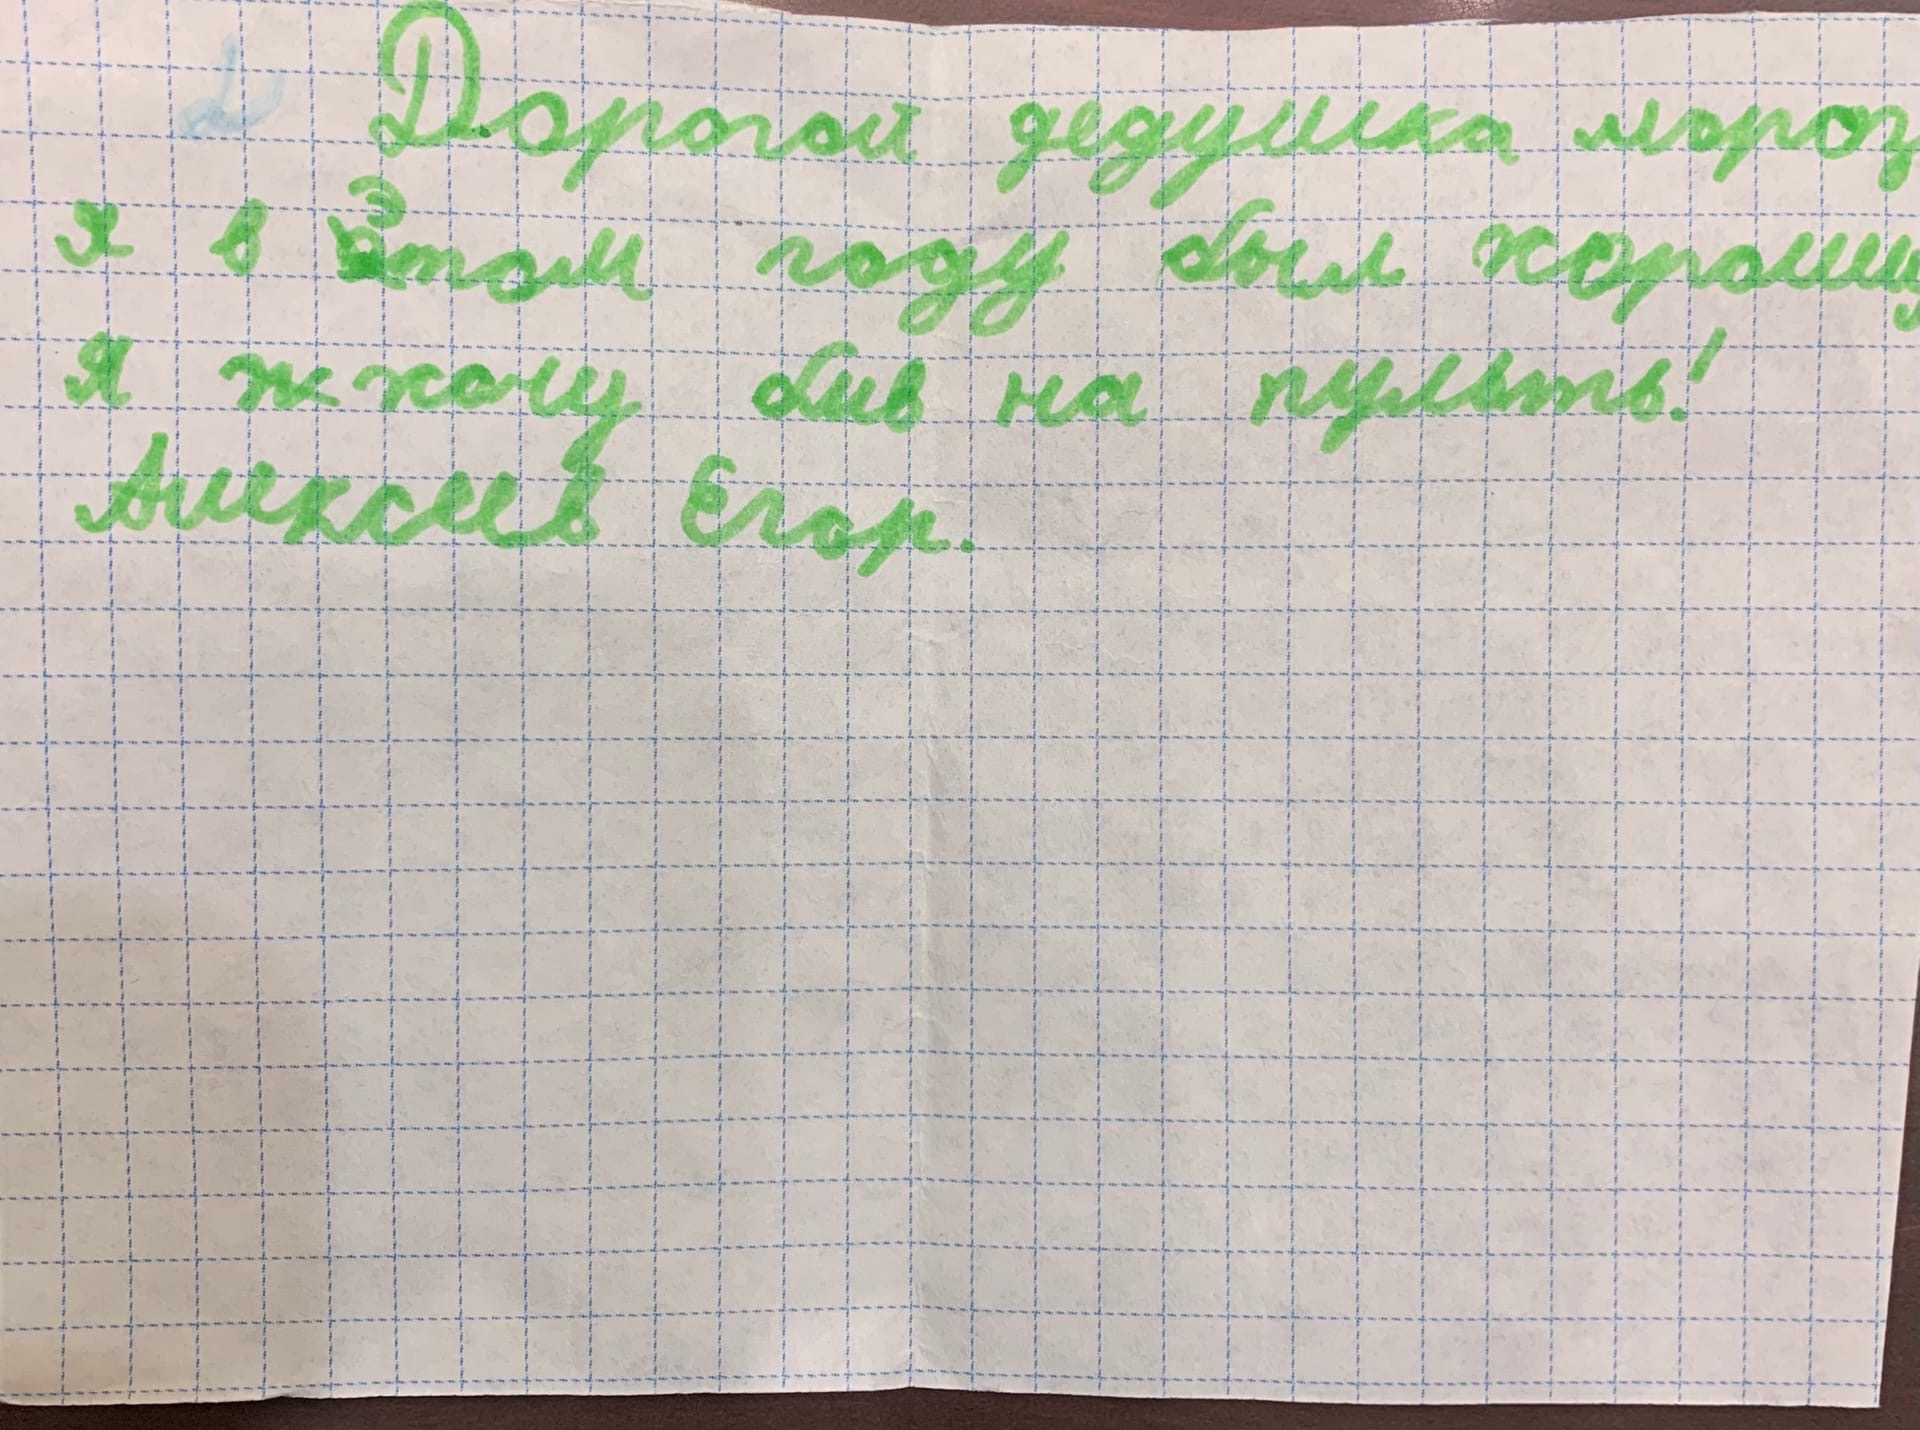 Дорогой дедушка мороз
я в Этом году был хорошу
Я ж хочу бив на пульть!
Алексеев Егор.